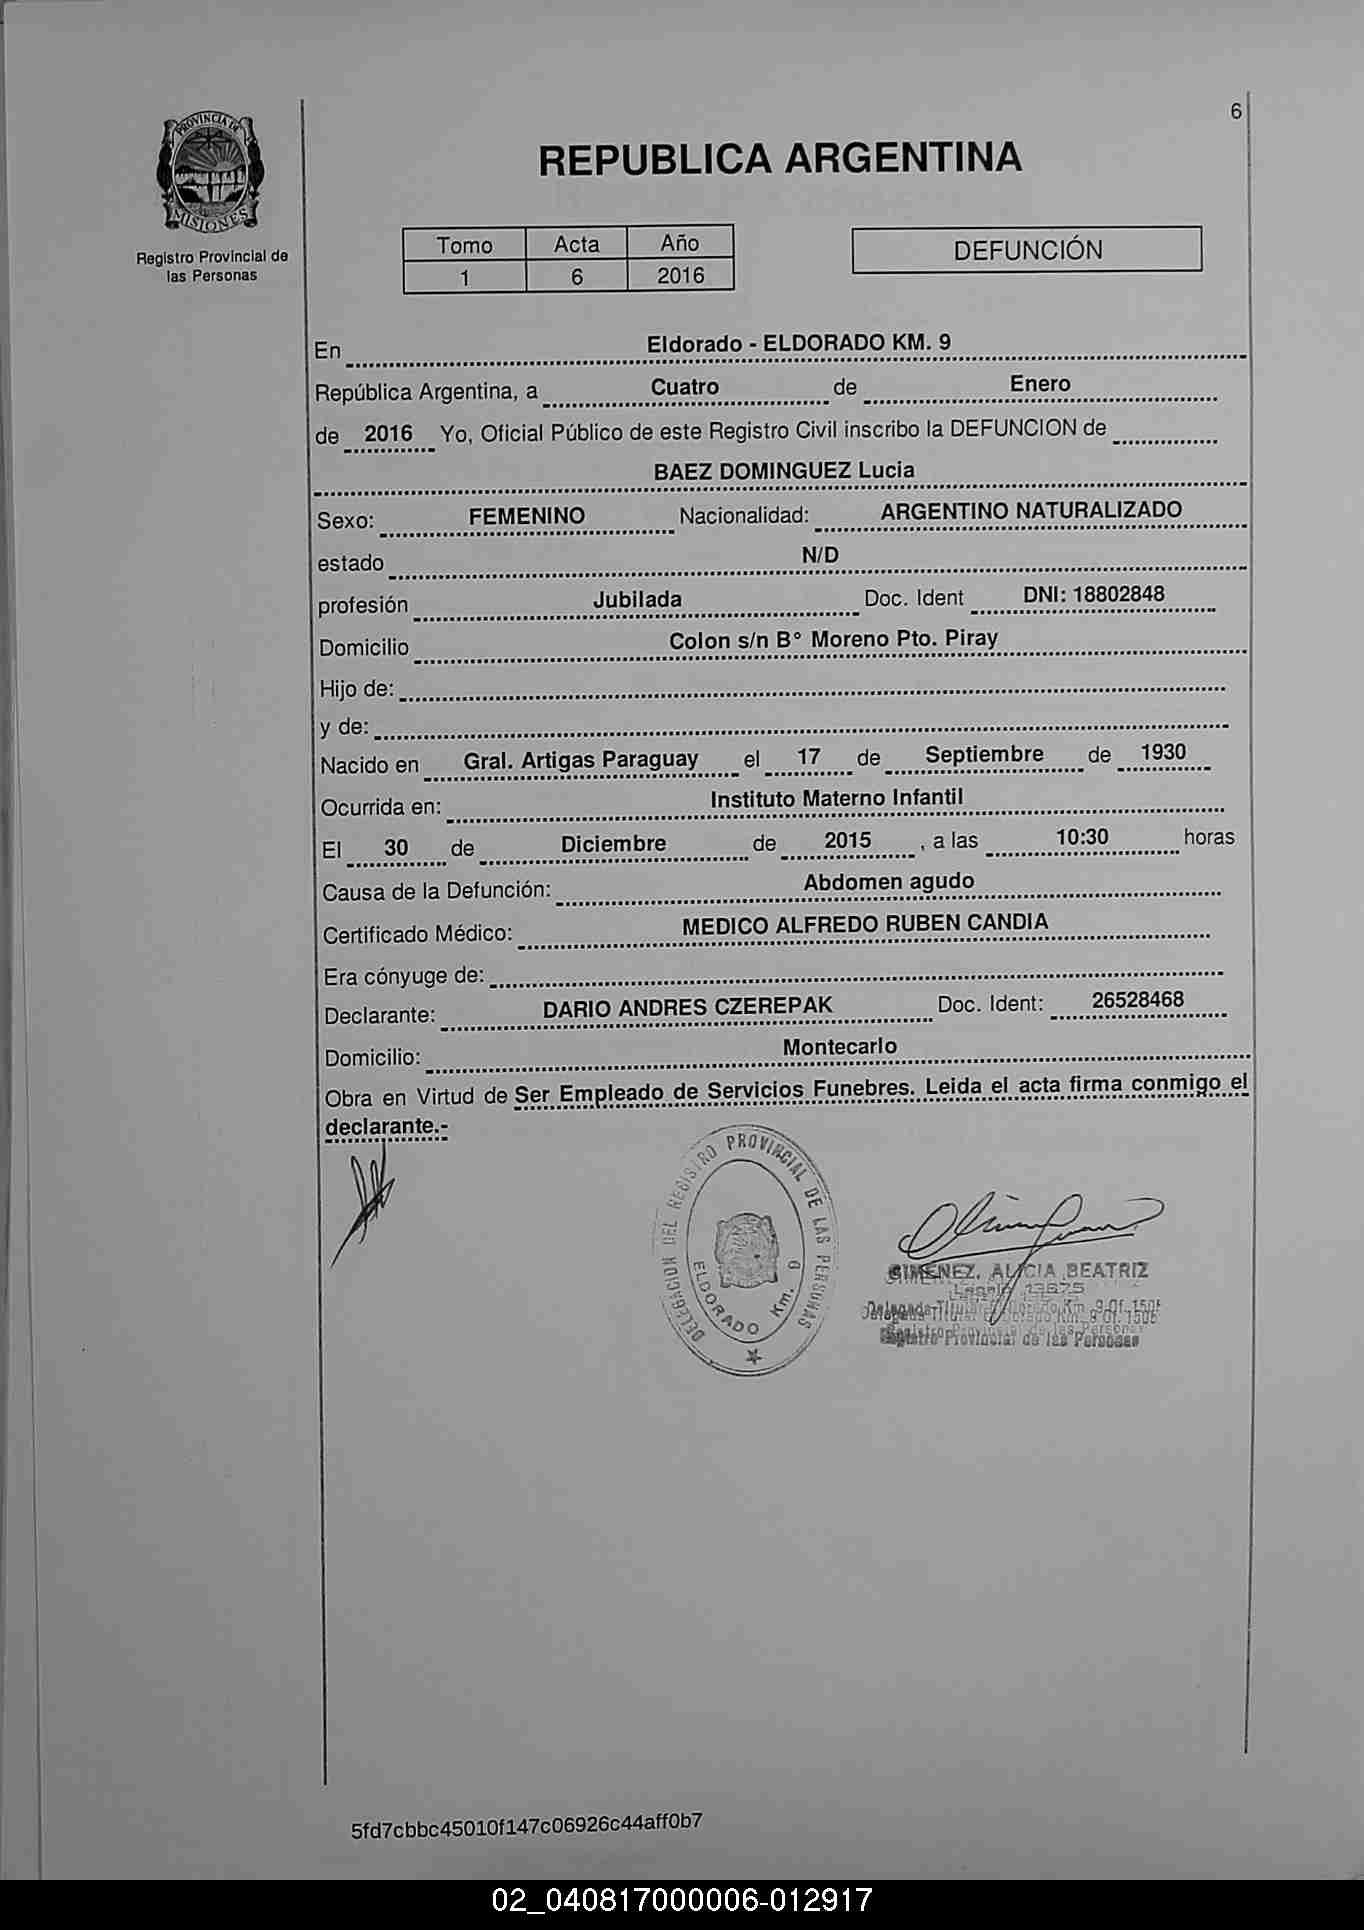 6
PROVINCIA DE
MISIONES
Registro Provincial de
las Personas
REPUBLICA ARGENTINA
Tomo Acta Año
1 6 2016
DEFUNCIÓN
En Eldorado - ELDORADO KM. 9
República Argentina, a Cuatro de Enero
de 2016 Yo, Oficial Público de este Registro Civil inscribo la DEFUNCION de
BAEZ DOMINGUEZ Lucia
Sexo: FEMENINO Nacionalidad: ARGENTINO NATURALIZADO
estado N/D
profesión Jubilada Doc. Ident DNI: 18802848
Domicilio Colon s/n B° Moreno Pto. Piray
Hijo de:
y de:
Nacido en Gral. Artigas Paraguay el 17 de Septiembre de 1930
Ocurrida en: Instituto Materno Infantil
El 30 de Diciembre de 2015 , a las 10:30 horas
Causa de la Defunción: Abdomen agudo
Certificado Médico: MEDICO ALFREDO RUBEN CANDIA
Era cónyuge de:
Declarante: DARIO ANDRES CZEREPAK Doc. Ident: 26528468
Domicilio: Montecarlo
Obra en Virtud de Ser Empleado de Servicios Funebres. Leida el acta firma conmigo el
declarante.-
DELEGACION DEL REGISTRO PROVINCIAL DE LAS PERSONAS
ELDORADO Km. 9
GIMENEZ, ALICIA BEATRIZ
Legajo 13675
Delegada Titular Eldorado Km. 9 Of. 1506
Registro Provincial de las Personas
5fd7cbbc45010f147c06926c44aff0b7
02_040817000006-012917